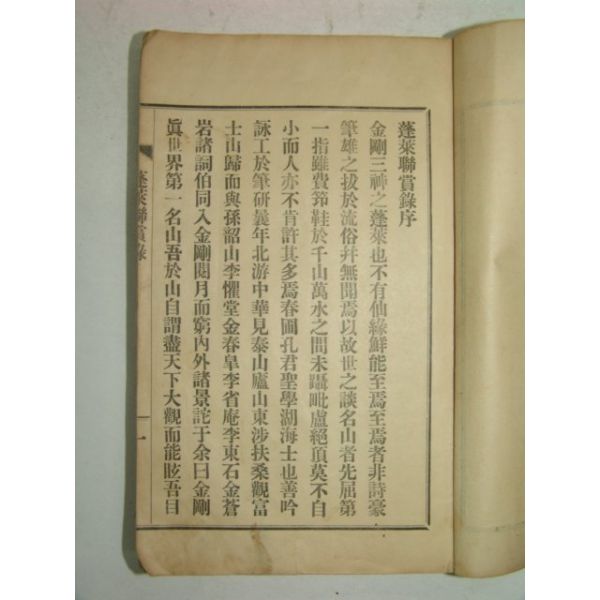 蓬萊聯賞錄序
金剛三神之蓬萊也不有仙緣鮮能至焉至焉者非詩豪
筆雄之拔於流俗幷無聞焉以故世之談名山者先屈第
一指雖費筇鞋於千山萬水之間未躡毗盧絕頂莫不自
小而人亦不肯許其多焉春圃孔君聖學湖海士也善吟
詠工於筆硏曩年北游中華見泰山廬山東涉扶桑觀富
士山歸而與孫韶山李懼堂金春皐李省庵李東石金蒼
岩諸詞伯同入金剛閱月而窮內外諸景詫于余曰金剛
眞世界第一名山吾於山自謂盡天下大觀而能眩吾目
蓬萊聯賞錄
一